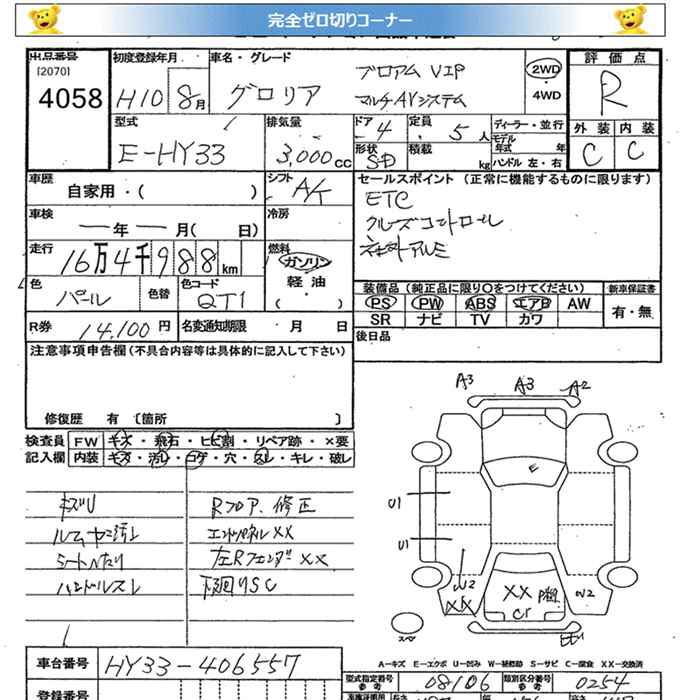 完全ゼロ切りコーナー
出品番号
[2070]
4058
初度登録年月
H10 8月
車名・グレード
グロリア
ブロアム VIP
マルチAVシステム
2WD
・4WD
評価点
R
外装 内装
C C
型式
E-HY33
排気量
3,000cc
ドア
4
定員
5人
ディーラー・並行
モデル年式 年
形状
SD
積載
kg
ハンドル 左・右
車歴
自家用・( )
シフト
A/K
セールスポイント (正常に機能するものに限ります)
ETC
クルーズコントロール
社外アルミ
車検
ー年ー月( 日)
冷房
走行
16万4千988km
燃料
ガソリン
軽油
・( )
色
パール
色替
色コード
QT1
装備品 (純正品に限り○をつけてください)
PS PW ABS エアB AW
SR ナビ TV カワ
新車保証書
有・無
R券
14,100円
名変通知期限 月 日
後日品
注意事項申告欄(不具合内容等は具体的に記入して下さい)
修復歴 有 〔箇所 〕
検査員
記入欄
FW キズ・飛石・ヒビ割・リペア跡・×要
内装 キズ・汚レ・コゲ・穴・スレ・キレ・破レ
キズU
ルームヤニ汚レ
シートヘタリ
ハンドルスレ
Rフロア修正
エンドパネルXX
左RフェンダーXX
下廻りSC
A3 A3 A2
E
U1
U1
W2
XX
XX P無
Cr
W2
スペア
A-キズ E-エクボ U-凹み W-補修跡 S-サビ C-腐食 XX-交換済
車台番号
HY33-406557
型式指定番号
参考
08106
類別区分番号
参考
0254
登録番号